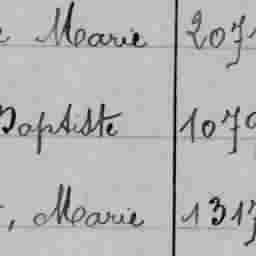 Marie 207
Baptiste 1079
, Marie 1317